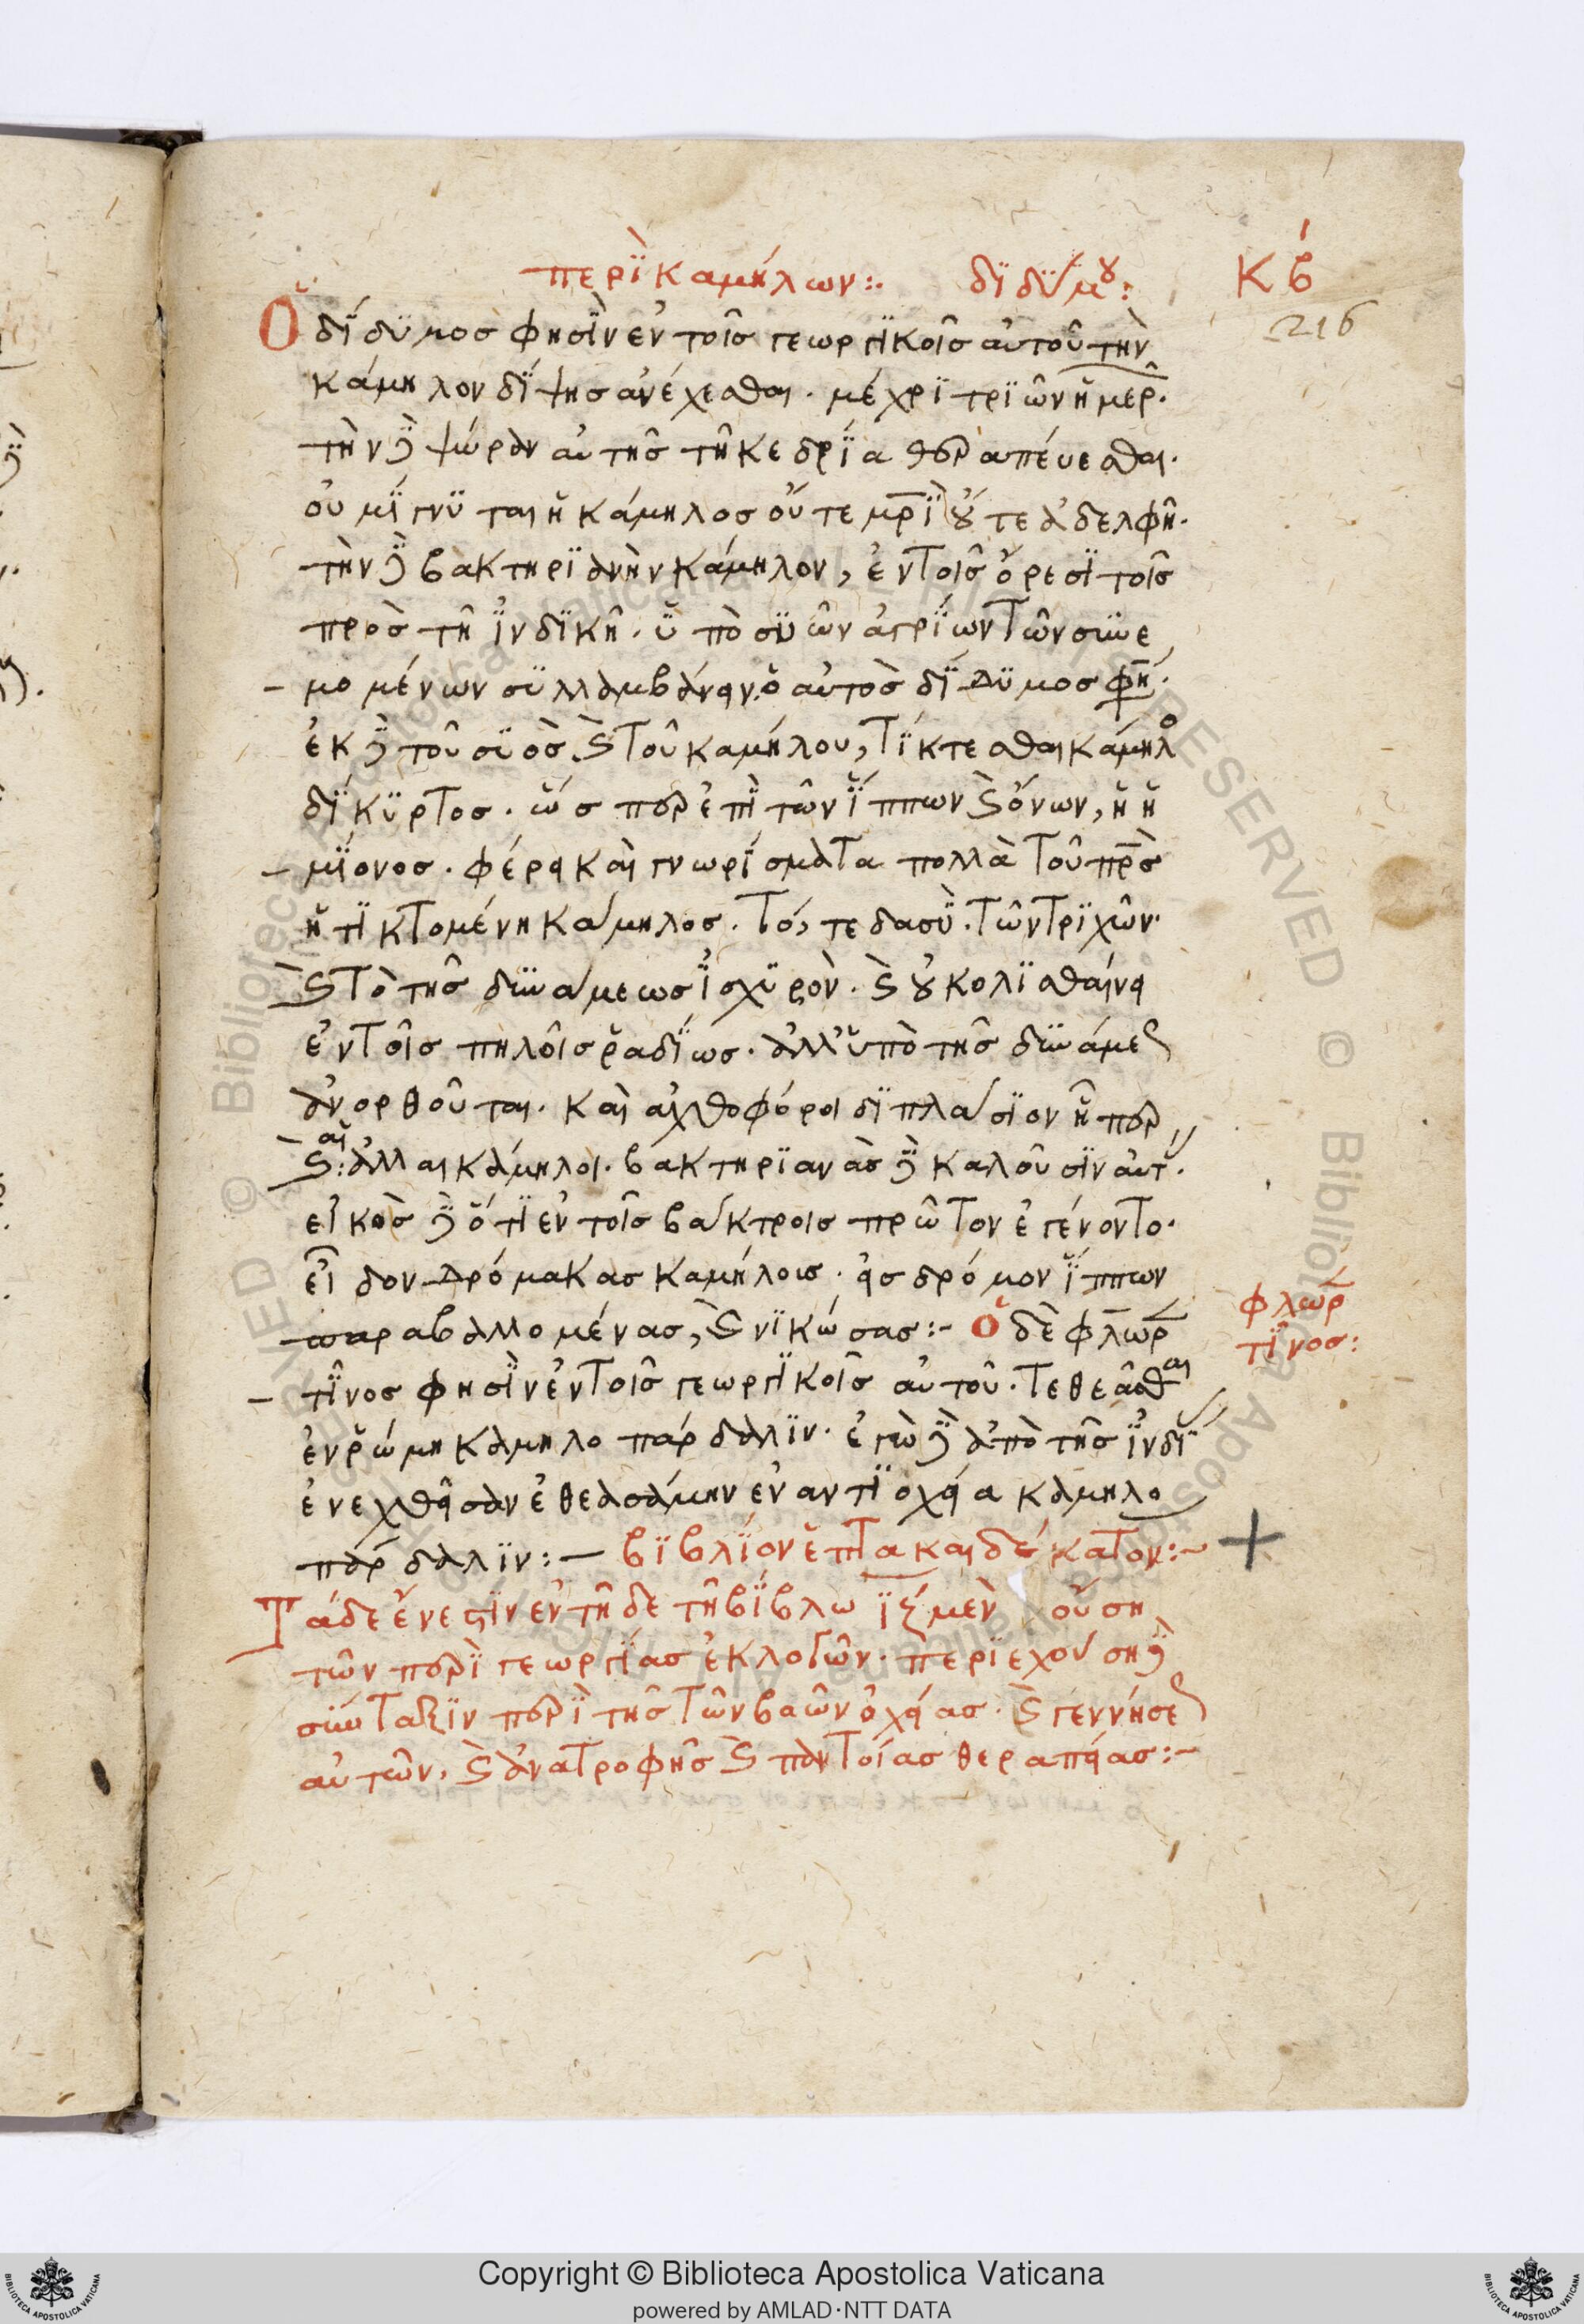 περὶ καμήλων:. διδύμου: κβ
216
Ὁ δίδυμος φησὶν ἐν τοῖς γεωργικοῖς αὐτοῦ τὴν
κάμηλον δίψης ἀνέχεσθαι. μέχρι τριῶν ἡμερῶν.
τὴν δὲ ψώραν αὐτῆς τῆ κεδρία θεραπεύεσθαι.
οὐ μίγνυται ἡ κάμηλος οὔτε μητρὶ οὔτε ἀδελφῆ.
τὴν δὲ βακτηριανὴν κάμηλον, ἐν τοῖς ὄρεσι τοῖς
πρὸς τῆ ἰνδικῆ. ὑπὸ συῶν ἀγρίων τῶν συννε
μομένων συλλαμβάνειν. ὁ αὐτὸς δίδυμος φησί.
ἐκ δὲ τοῦ συὸς καὶ τοῦ καμήλου, τίκτεσθαι κάμηλο
δίκυρτος. ὥσπερ ἐπὶ τῶν ἵππων καὶ ὄνων, ἡ ἡ
μίονος. φέρει καὶ γνωρίσματα πολλὰ τοῦ πατρὸς
ἡ τικτομένη κάμηλος. τό, τε δασὺ. τῶν τριχῶν.
καὶ τὸ τῆς δυνάμεως ἰσχυρὸν. καὶ οὐκ ὀλισθαίνει
ἐν τοῖς πηλοῖς ῥαδίως. ἀλλ' ὑπὸ τῆς δυνάμεως
ἀνορθοῦται. καὶ ἀχθοφόροι διπλάσιον ἢ περ
καὶ αἱ ἄλλαι κάμηλοι. βακτηριανὰς δὲ καλοῦσιν αὐτ.
εἰκὸς δὲ ὅτι ἐν τοῖς βάκτροις πρῶτον ἐγένοντο.
εἶδον δρόμακας καμήλους. εἰς δρόμον ἵππων
παραβαλλομένας, καὶ νικώσας:- ὁ δὲ φλωρ
τῖνος φησὶν ἐν τοῖς γεωργικοῖς αὐτοῦ. τεθεᾶσθαι
φλωρ
τῖνος:
ἐν ῥώμη καμηλοπάρδαλιν. ἐγὼ δὲ ἀπὸ τῆς ἰνδι
ἐνεχθεῖσαν ἐθεασάμην ἐν αντιοχεία καμηλο
πάρδαλιν:— βιβλίον ἑπτακαιδέκατον:~
Τάδε ἔνεστιν ἐν τῆδε τῆ βίβλω ιζ μὲν οὔση
τῶν περὶ γεωργίας ἐκλογῶν. περιεχούση δὲ
σύνταξιν περὶ τῆς τῶν βοῶν ὀχείας. καὶ γεννήσεως
αὐτῶν, καὶ ἀνατροφῆς καὶ παντοίας θεραπείας:~
Copyright © Biblioteca Apostolica Vaticana
powered by AMLAD·NTT DATA